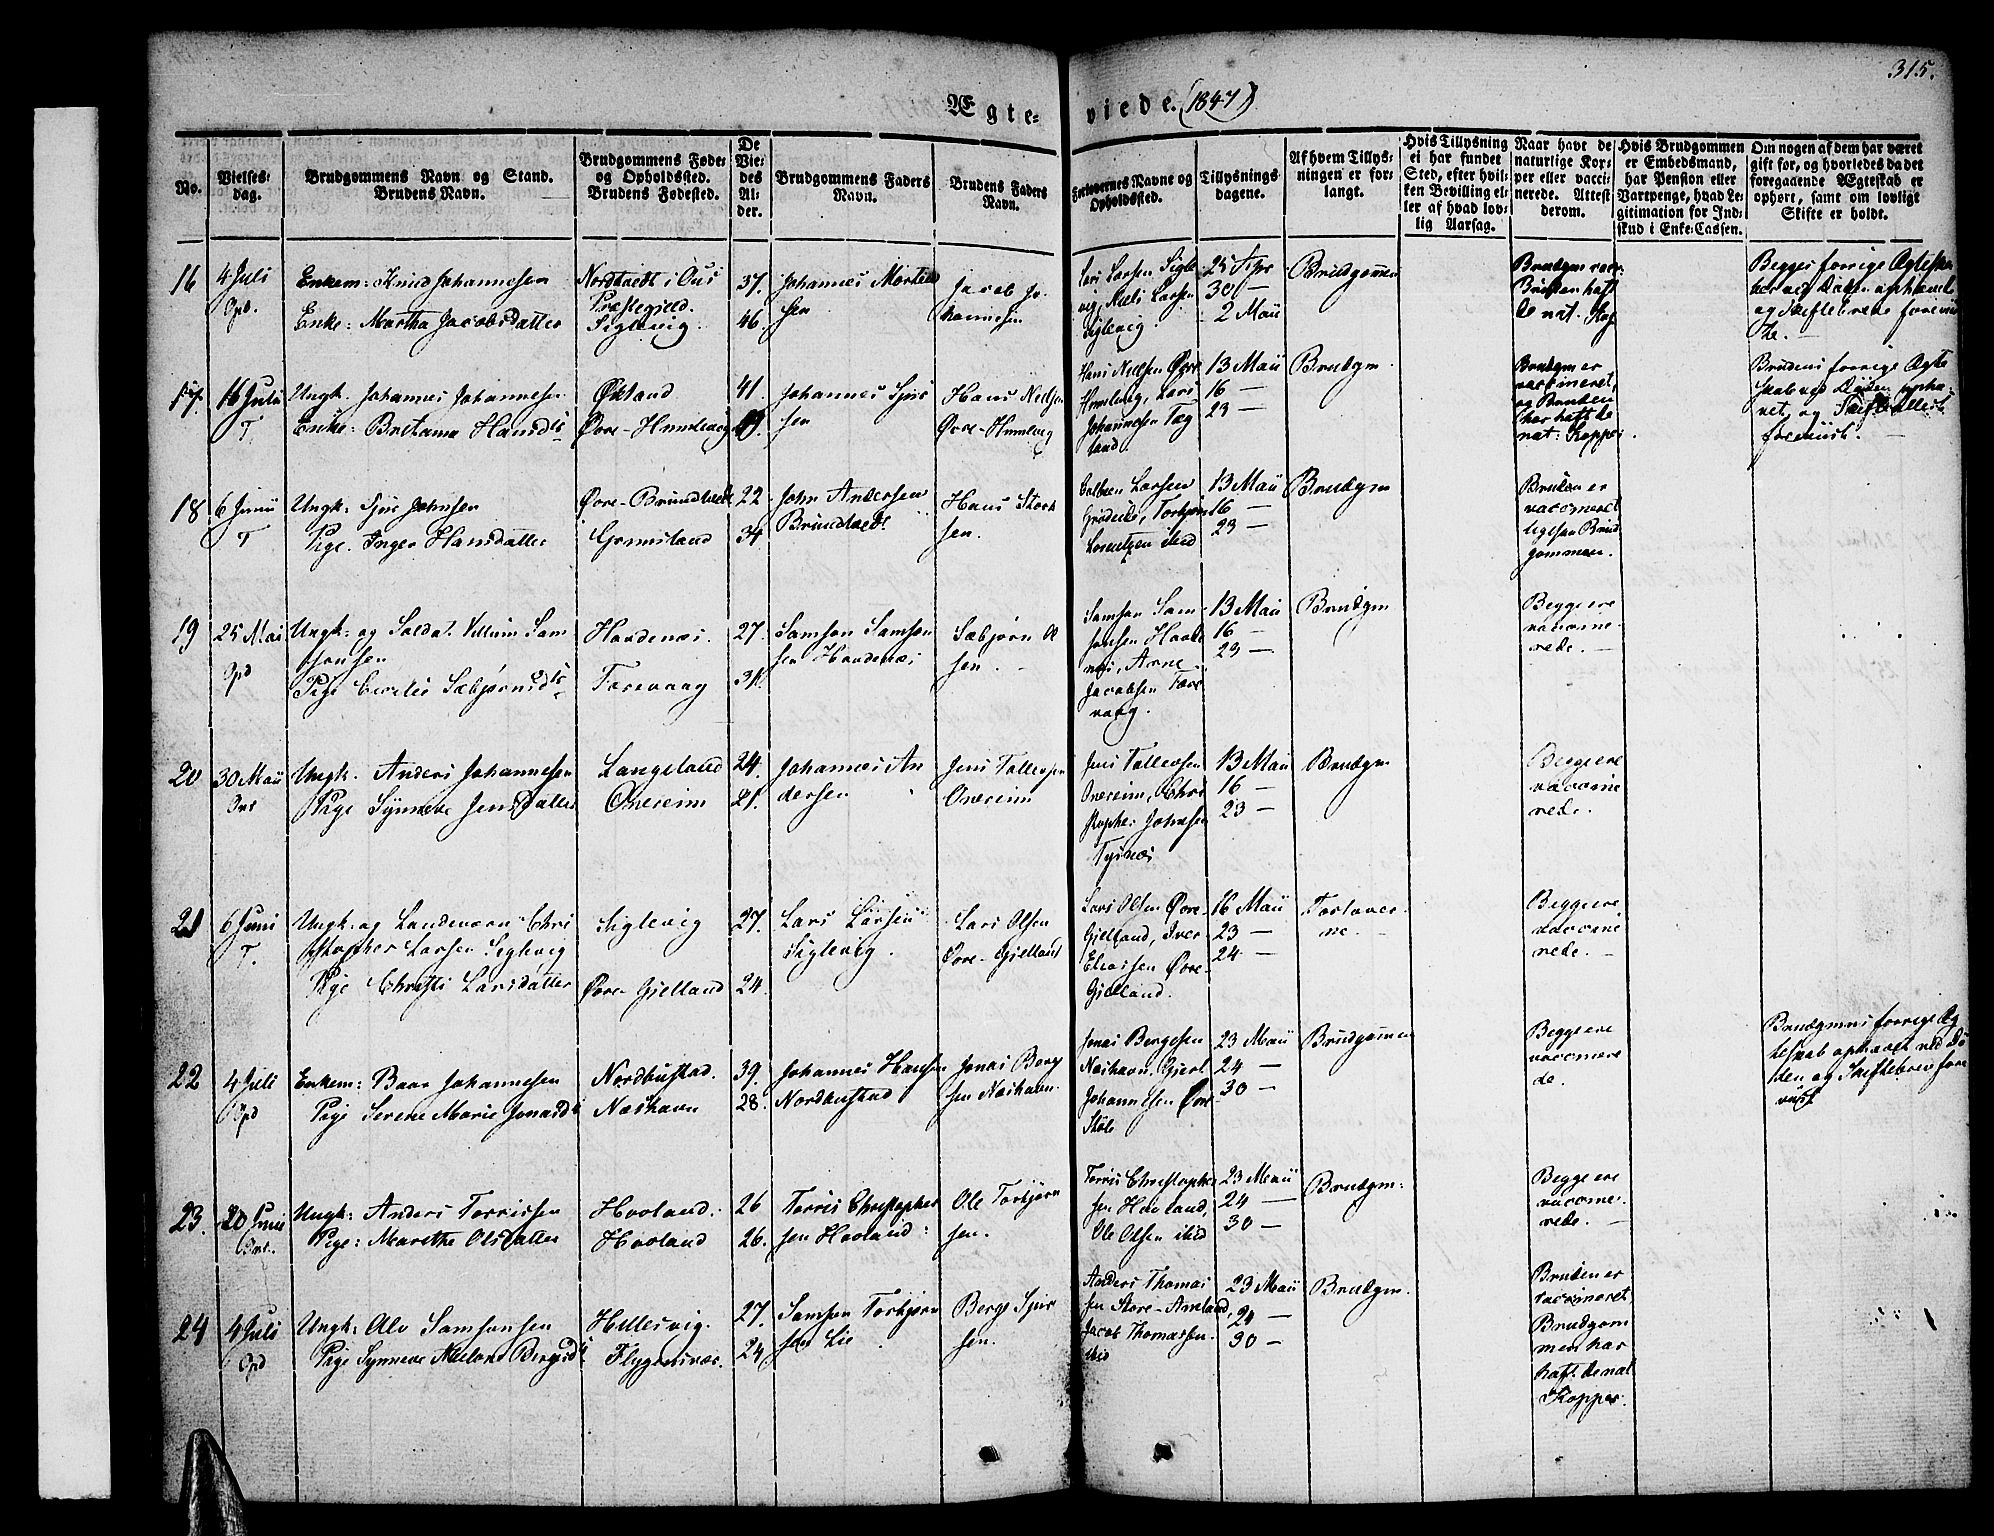 315.
Ægte=
viede. (1847)
No.
Vielses-
dag.
Brudgommens Navn og Stand.
Brudens Navn.
Brudgommens Føde-
og Opholdssted.
Brudens Fødested.
De
Vie-
des
Al-
der.
Brudgommens Faders
Navn.
Brudens Faders
Navn.
Forlovernes Navne og
Opholdssted.
Tillysnings-
dagene.
Af hvem Tillys-
ningen er for-
langt.
Hvis Tillysning
ei har fundet
Sted, efter hvil-
ken Bevilling el-
ler af hvad lov-
lig Aarsag.
Naar havt de
naturlige Kop-
per eller vacci-
nerede. Attest
derom.
Hvis Brudgommen
er Embedsmand,
har Pension eller
Vartpenge, hvad Le-
gitimation for Ind-
skud i Enke-Cassen.
Om nogen af dem har været
gift før, og hvorledes da det
foregaaende Ægteskab er
ophørt, samt om lovligt
Skifte er holdt.
16
4 Juli
Opd.
Enkem: Knud Johannesen
Enke: Martha Jacobsdatter
Nordtvedt i Ous
Præstegjeld.
Siglevig.
37.
46.
Johannes Morten
sen
Jacob Jo-
hannesen
Lars Larsen Sigle
vig, Niels Larsen
Siglevig.
25 Apr
30 —
2 Maii
Brudgommen
17.
16 Julii
T
Ungk. Johannes Johannesen
Enke: Hansd:
Økland
Øvre-
41.
Johannes Sjur
sen
Hans Nielsen
Hans Nielsen Øvre
Johannesen
13 Maii
16 —
23 —
Brudgm.
Brudgm er
vaccineret,
og Bruden
har haft de
nat: Kopper.
Brudens forrige Ægte
skab ved Døden ophæ-
vet, og
forevist.
18
6 Junii
T
Ungk: Sjur Johnsen
Pige. Inger Hansdatter
Øvre-Brundtvedt
Grønsland
22
34
John Andersen
Brundtvedt
Hans Stork
sen.
Larsen
13 Maii
16 —
23 —
Brudgm
Bruden er
vaccineret
ligesaa Brud
gommen.
19
25 Mai
Opd
Ungk: og Soldat. Villum Sam
sonsen
Pige Cecilie Sæbjørnsd:
Hondenæs.
Førevaag
27.
31.
Samson Samson
sen Hondenæs
Sæbjørn Ol
sen.
Samson Sam-
sonsen
Arne
Jacobsen Føre
vaag.
13 Maii
16 —
23 —
Brudgm
Begge ere
vaccine-
rede.
20
30 Maii
Ungk. Anders Johannesen
Pige Synneve Jensdatter
Langeland
Onereim
24.
21.
Johannes An
dersen
Jens Tollevsen
Onereim
Jens Tollevsen
Onereim, Chri
stopher Johnsen
Tysnæs
13 Maii
16 —
23 —
Brudgm
Begge ere
vaccine
rede.
21
6 Juni
T.
Ungk. og Landeværn Chri
stopher Larsen Siglevig
Pige Christi Larsdatter
Siglevig
Øvre Gjelland
27.
24.
Lars Larsen
Siglevig.
Lars Olsen
Øvre-Gjelland
Lars Olsen Øvre-
Gjelland, Iver
Eliassen Øvre-
Gjelland.
16 Maii
23 —
24 —
Forlover-
ne.
Begge ere
vaccine
rede.
22
4 Juli
Opd
Enkem: Baar Johannesen
Pige Serene Marie Jonasd:
Nordhustad.
Næshavn
39.
28.
Johannes Hansen
Nordhustad
Jonas Berg
sen Neshavn.
Jonas Bergesen
Neshavn.
Johannesen Øvre
23 Maii
24 —
30 —
Brudgommen
Begge ere
vaccinere
de.
Brudgmens forrige Æg
teskab ophævet ved Dø
den og Skiftebrev fore
viist
23.
20 Junii
Ungk: Anders Torrissen
Pige: Marethe Olsdatter
Hovland.
Hovland
26
26.
Torris Christopher
sen Hovland:
Ole Torbjørn
sen.
Torris Christopher
sen Hovland,
Ole Olsen ibid
23 Maii
24 —
30 —
Brudgm:
Begge ere
vaccine-
rede.
24
4 Juli
Opd
Ungk: Alv Samsonsen
Pige Synneve Bergesd:
Hellesvig.
Flygensvær.
27.
24
Samson Torbjørn
sen Lie
Berge Sjur
sen.
Anders Thomas
sen Store-Amland,
Jacob Thomassen.
ibid
23 Maii
24 —
30 —
Brudgm.
Bruden er
vaccineret,
Brudgom
men har
haft de nat
Kopper.